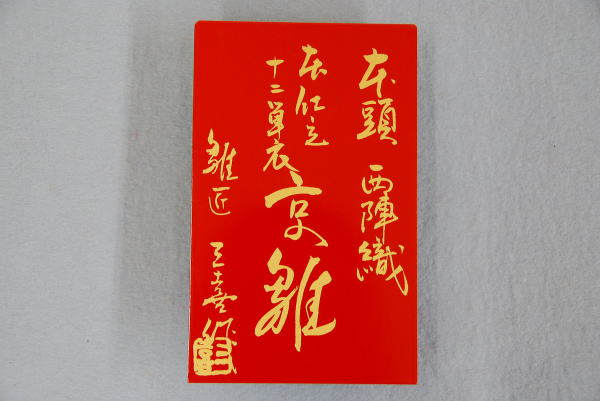 本頭 西陣織
本仁立
十二単衣
京雛
雛匠